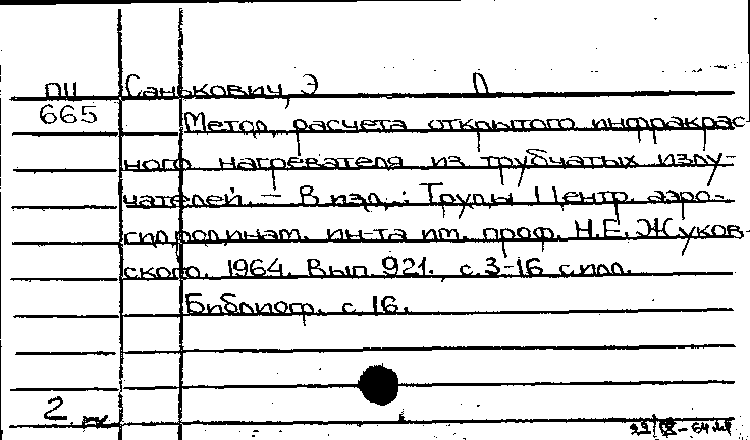 ПП Санькович, Э Л
665 Метод расчета открытого инфракрас-
ного нагревателя из трубчатых излу-
чателей. — В изд.: Труды Центр. аэро-
гидродинам. ин-та им. проф. Н.Е. Жуков-
ского. 1964. Вып. 921. с. 3-16 с илл.
Библиогр. с. 16.
2